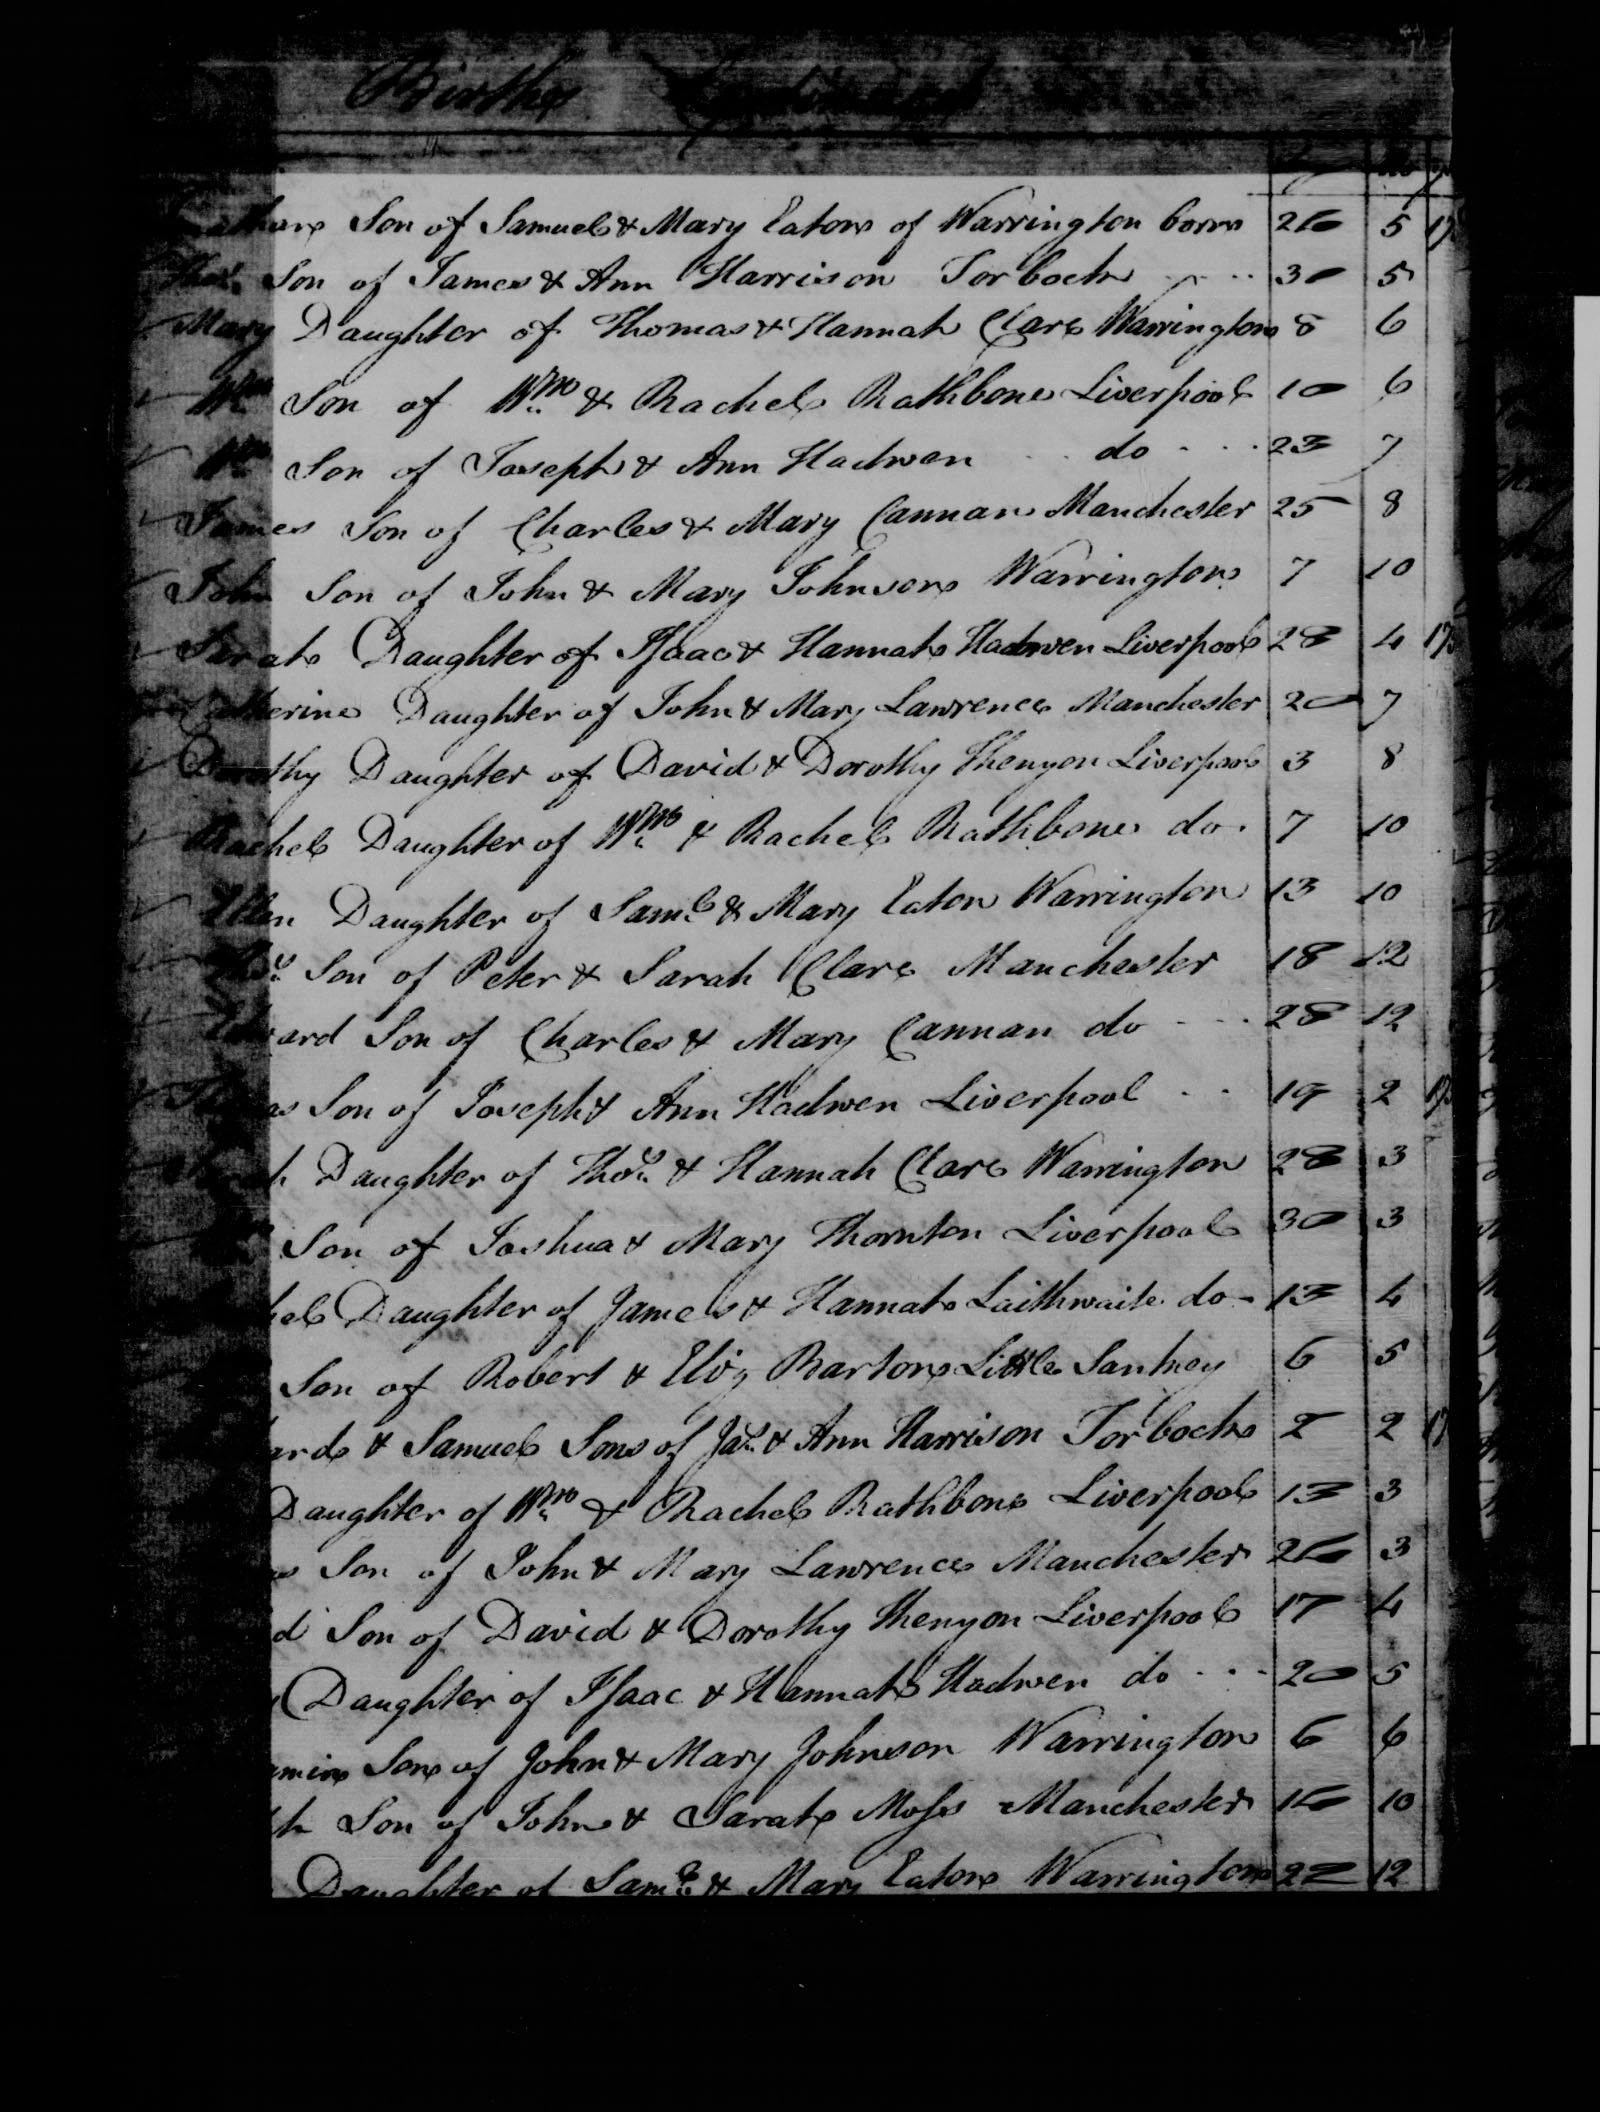 Births Continued
Son of Samuel & Mary Eaton of Warrington born 26 5
Thos. Son of James & Ann Harrison Torbock 30 5
Mary Daughter of Thomas & Hannah Clare Warrington 8 6
Wm Son of Wm & Rachel Rathbone Liverpool 10 6
Wm Son of Joseph & Ann Hadwen do 23 7
James Son of Charles & Mary Cannan Manchester 25 8
John Son of John & Mary Johnson Warrington 7 10
Sarah Daughter of Isaac & Hannah Hadwen Liverpool 28 4
Catherine Daughter of John & Mary Lawrence Manchester 20 7
Dorothy Daughter of David & Dorothy Kenyon Liverpool 3 8
Rachel Daughter of Wm & Rachel Rathbone do. 7 10
Ellen Daughter of Saml & Mary Eaton Warrington 13 10
Thos. Son of Peter & Sarah Clare Manchester 18 12
Edward Son of Charles & Mary Cannan do 28 12
Son of Joseph & Ann Hadwen Liverpool 19 2
Daughter of Thos. & Hannah Clare Warrington 28 3
Son of Joshua & Mary Thornton Liverpool 30 3
hel Daughter of James & Hannah Laithwaite do 13 4
Son of Robert & Eliz Barton Little Sankey 6 5
ard & Samuel Sons of Jas. & Ann Harrison Torbock 2 2 17
Daughter of Wm & Rachel Rathbone Liverpool 13 3
Son of John & Mary Lawrence Manchester 26 3
d Son of David & Dorothy Kenyon Liverpool 17 4
Daughter of Isaac & Hannah Hadwen do 20 5
amin Son of John & Mary Johnson Warrington 6 6
h Son of John & Sarah Moss Manchester 16 10
Daughter of Saml & Mary Eaton Warrington 22 12